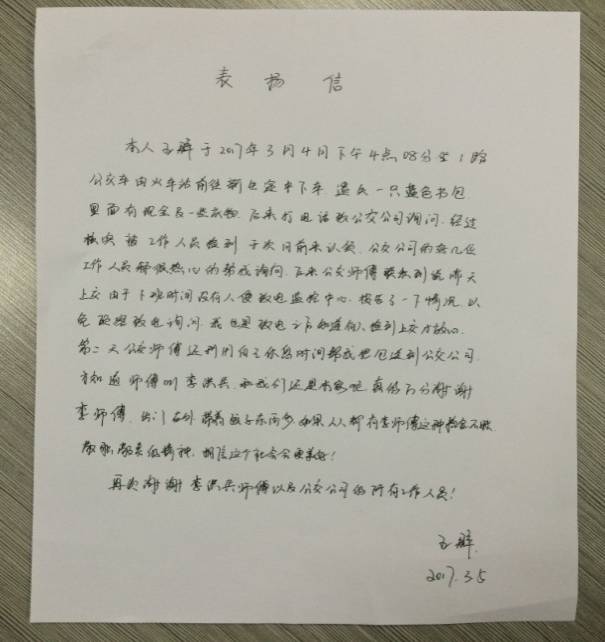 表扬信
本人王辉于2017年3月4日下午4点08分坐1路
公交车由火车站前往 下车，遗失一只蓝色书包
里面有现金及一些衣物。后来打电话致公交公司询问，经过
核实被工作人员捡到于次日前来认领，公交公司的好几位
工作人员都很热心的帮我询问，后来公交师傅联系到说昨天
上交由于下班时间没有人便致电监控中心，报告了一下情况，以
免 致电询问，我也是致电之后知道包捡到上交才放心。
第二天公交师傅还利用自己休息时间帮我把包送到公交公司，
方知道师傅叫李洪兵，和我们还是 真的万分谢谢
李师傅， 如果人人都有李师傅这种拾金不昧
的精神，相信这个社会会更美好！
再次谢谢李洪兵师傅以及公交公司的所有工作人员！
王辉
2017.3.5